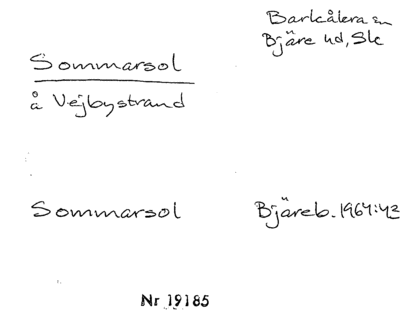 Barkåkra sn
Bjäre hd, Sk
Sommarsol
å Vejbystrand
Sommarsol
Bjäreb. 1964:43
Nr 19185